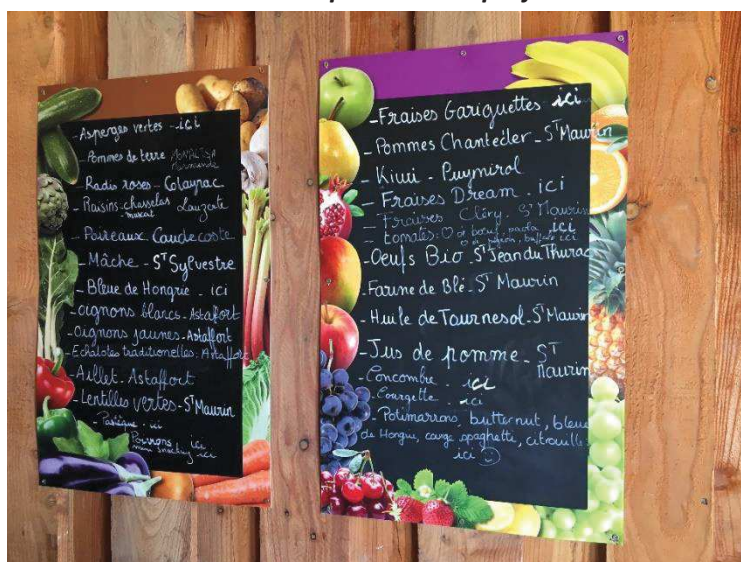 - Asperges vertes - ici
- Pommes de terre
- Radis roses - Colayrac
- Raisins: chasselas Lauzerte
muscat
- Poireaux. Caudecoste
- Mâche - ST Sylvestre
- Bleue de Hongrie - ici
- oignons blancs - Astaffort
- Oignons jaunes - Astaffort
- Echalotes traditionelles: Astaffort
- Aillet - Astaffort
- Lentilles vertes - ST Maurin
- Pastèque - ici
Poivrons ici
mini snacking ici
- Fraises Gariguettes - ici
- Pommes Chantecler - ST Maurin
- Kiwi - Puymirol
- Fraises Dream - ici
- Fraises Cléry - ST Maurin
- tomates: ♡ de bœuf, ici
ici
- Oeufs Bio - ST Jean du Thurac
- Farine de Blé - ST Maurin
- Huile de Tournesol - ST Maurin
- Jus de pomme - ST
Maurin
- Concombre - ici
- Courgette - ici
- Potimarrons, butternut, bleue
de Hongrie, courge spaghetti, citrouille
ici ☺